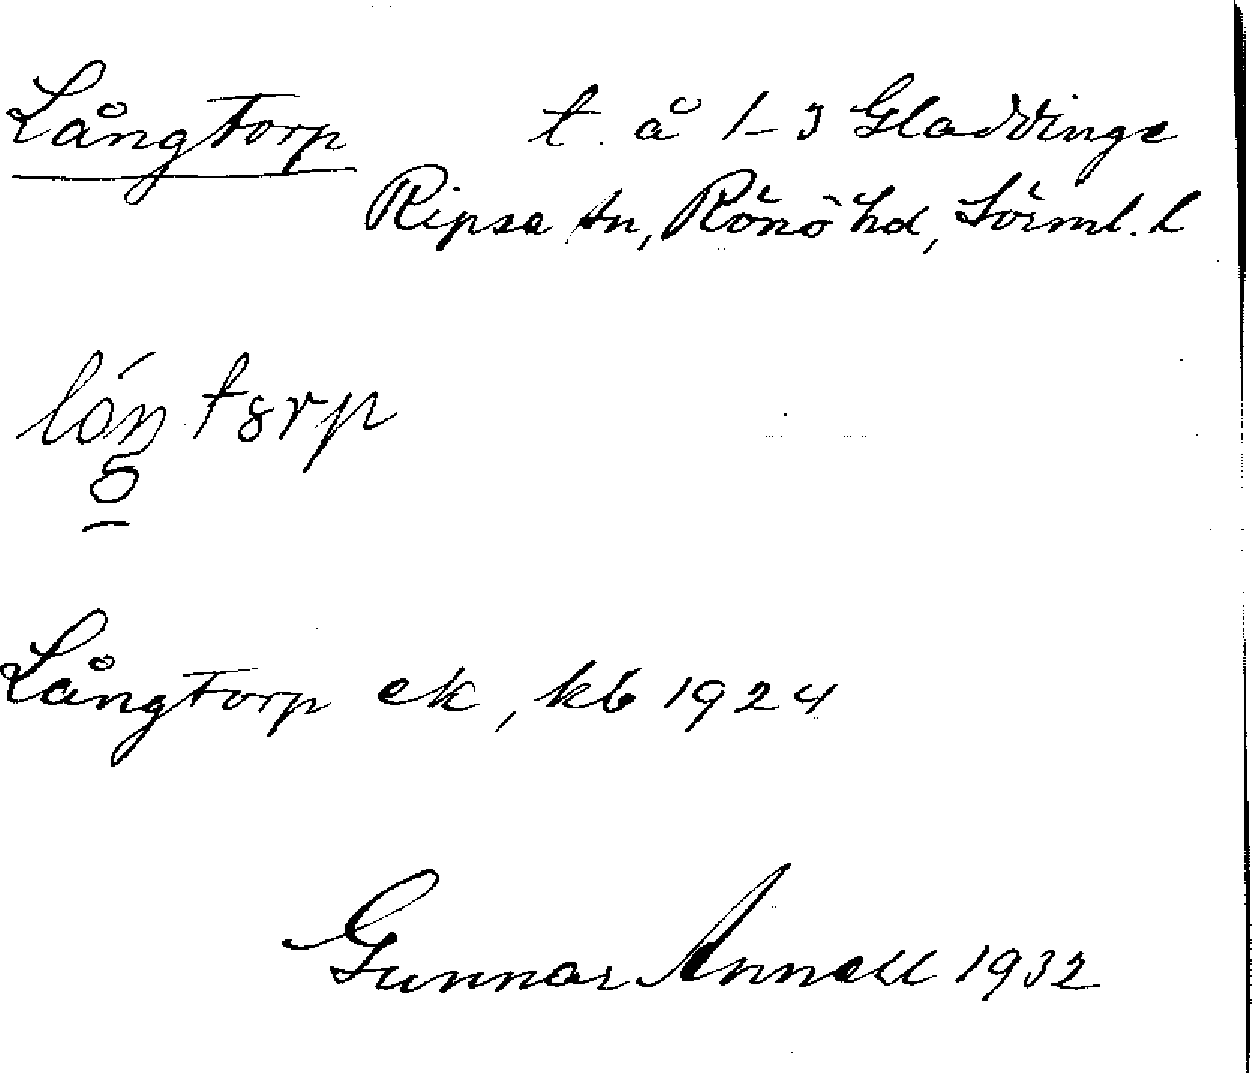 Långtorp t. å 1-3 Gladdinge
Ripsa sn, Rönö hd, Sörml. l
Långtorp ek, kb 1924
Gunnar Annell 1932